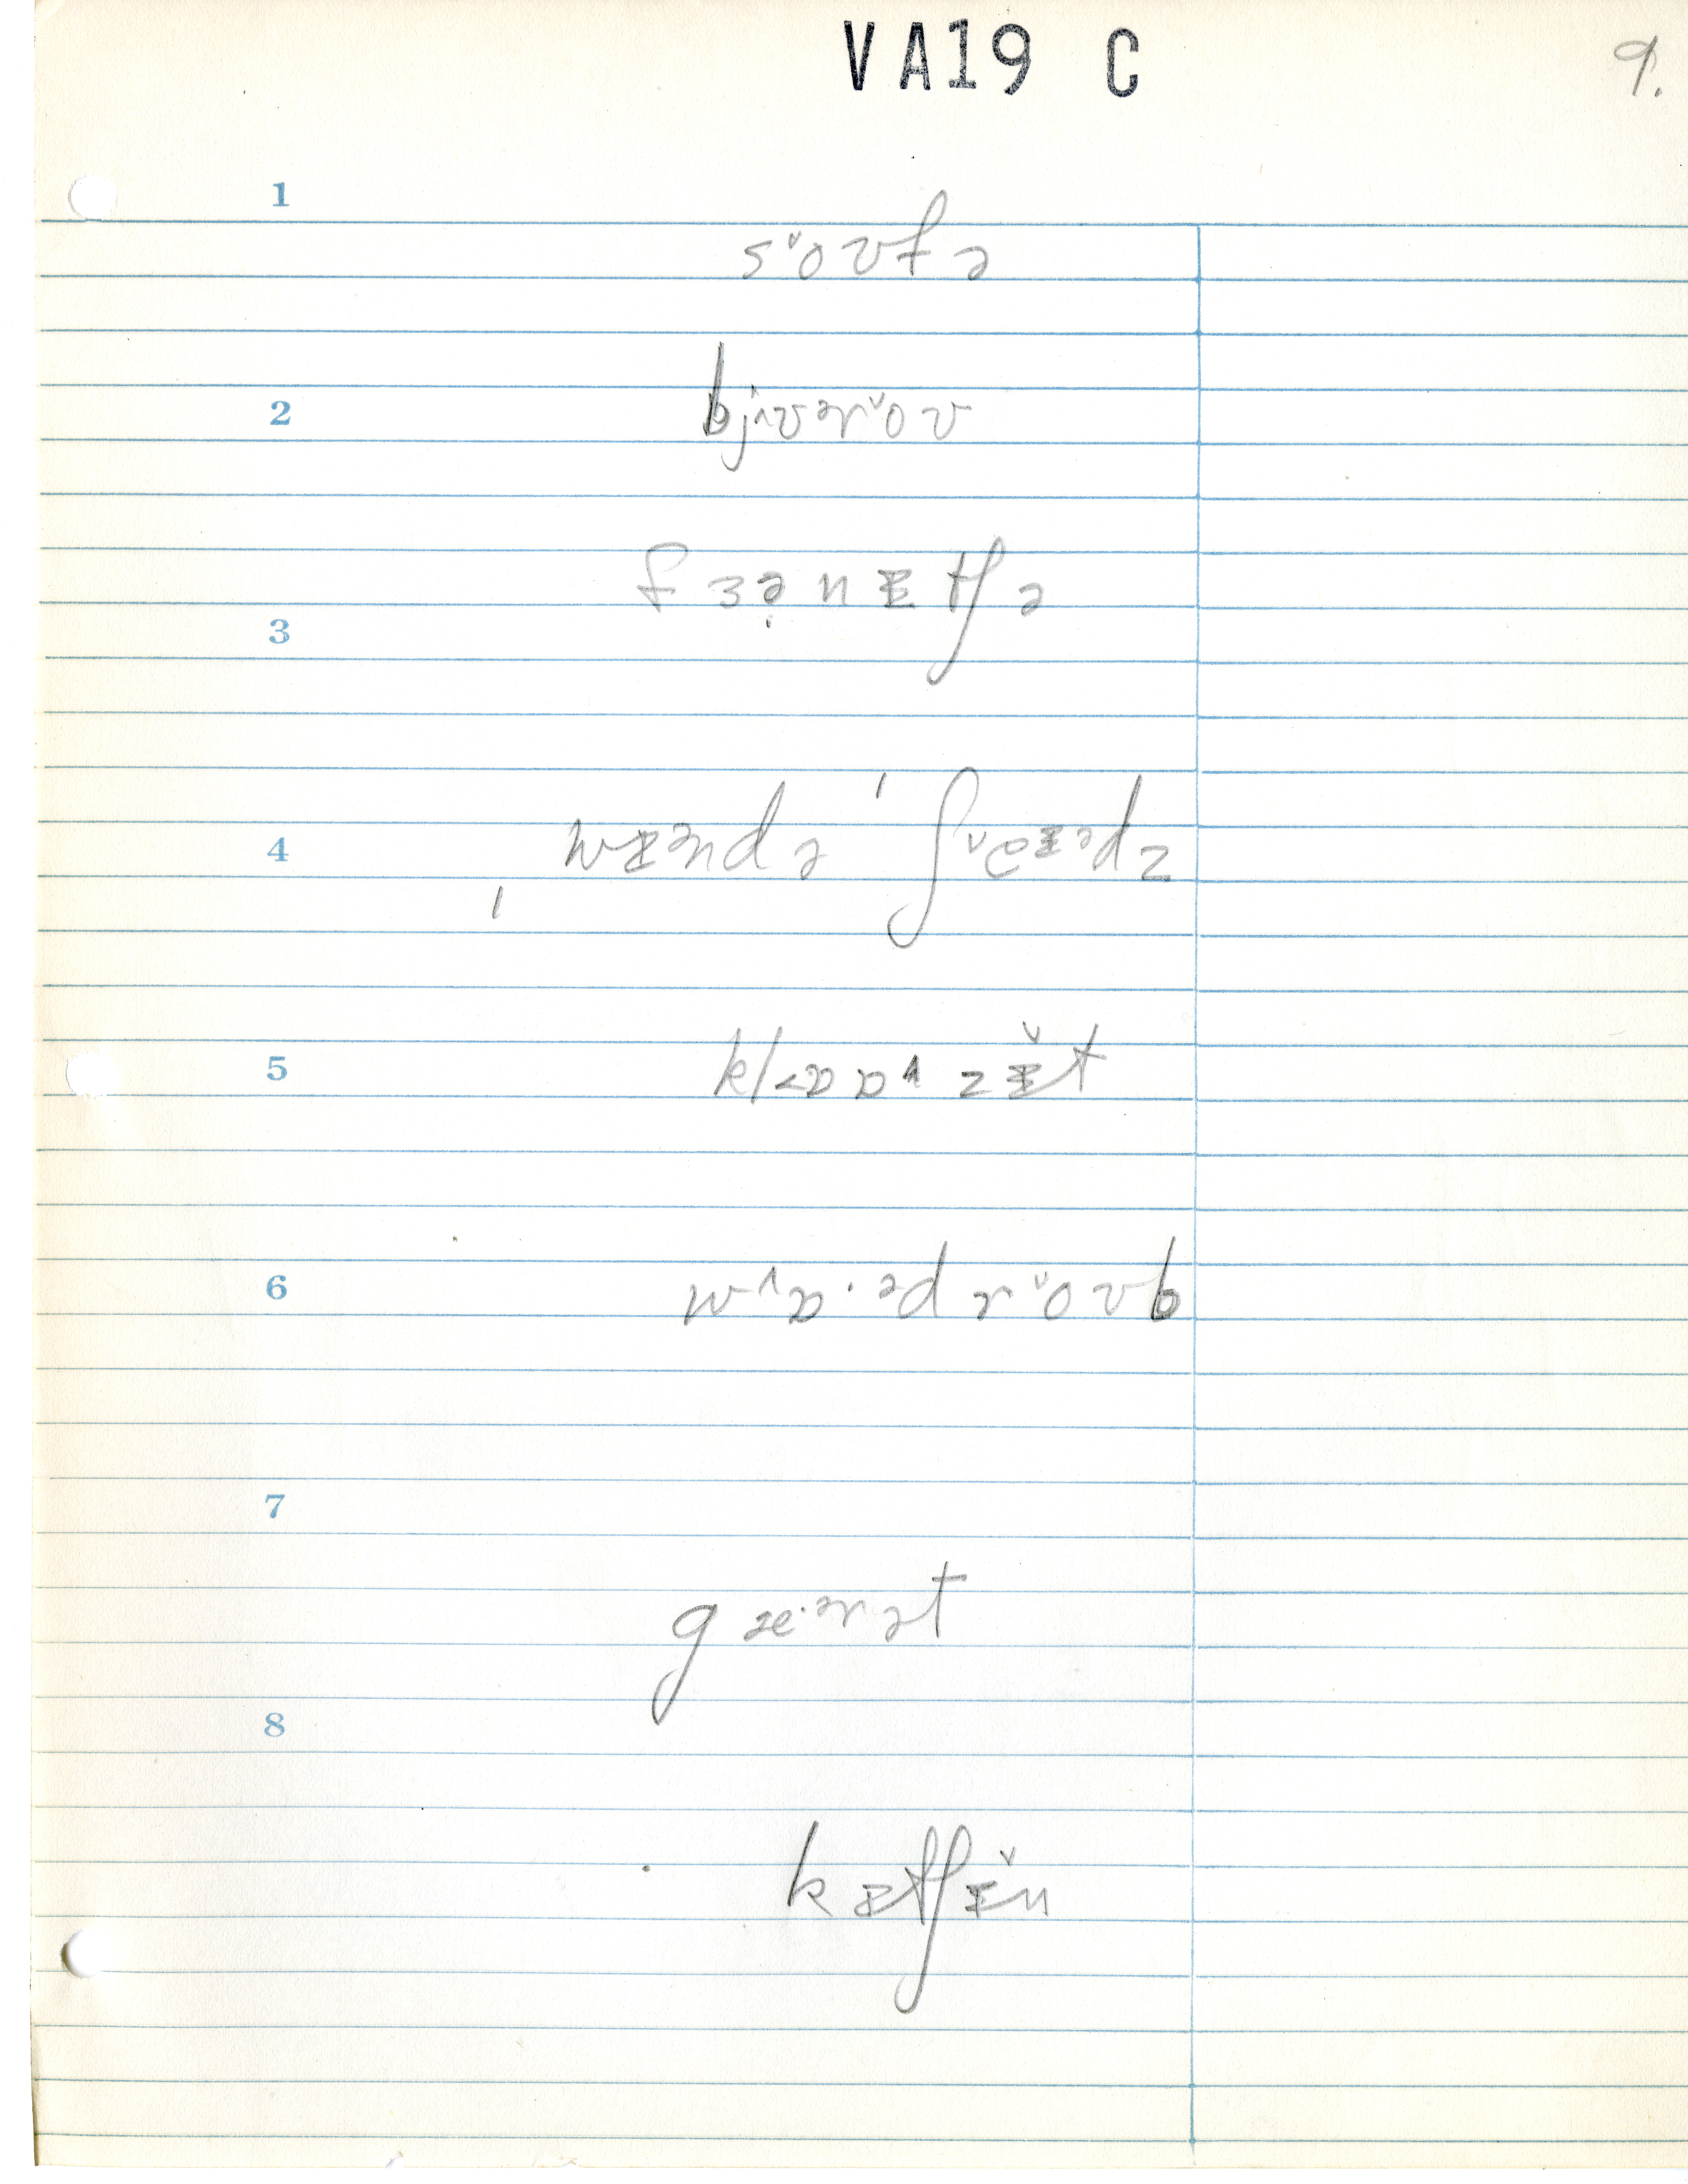 VA19 C
9.
1
s˅oʊfə
2
bjʌʊərˇoʊ
3
fɜə̣nᵻtʃə
4
ˌwᵻəndəˈʃˇeᵻədz
5
kl<ɒɒ^zᵻ̌t
6
w^ɒ·ədrˇoʊb
7
gæ·ərət
8
kᵻtʃᵻ̌n